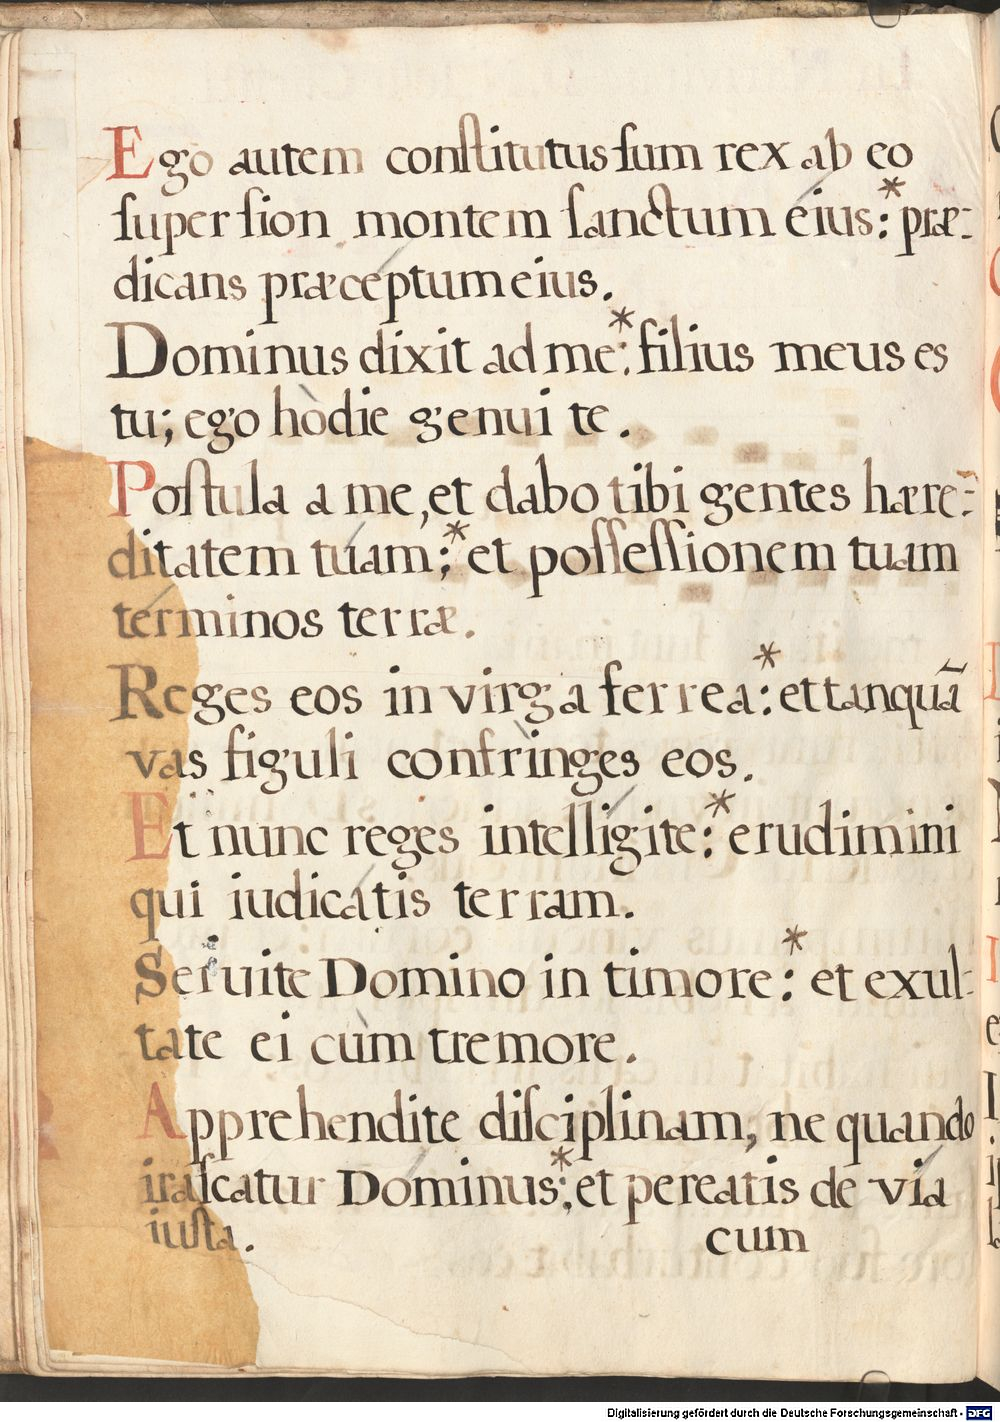 Ego autem conſtitutus ſum rex ab eo
ſuper ſion montem ſanctum éius:* præ-
dicans præcéptum eius.
Dominus dixit ad me:* filius meus es
tu; ego hòdie genui te.
Poſtula a me, et dabo tibi gentes hære-
ditatem túam;* et poſſeſſionem tuam
términos terræ.
Reges eos in virga ferrea:* et tanquã
vas figuli confrìnges eos.
Et nunc reges intellígite:* erudimini
qui iudicátis terram.
Seruite Domino in timore:* et exul-
tate ei cùm tremore.
Apprehendite diſciplinam, ne quando
iraſcatur Dóminus;* et pereatis de vía
iuſta.
cum
Digitalisierung gefördert durch die Deutsche Forschungsgemeinschaft - DFG